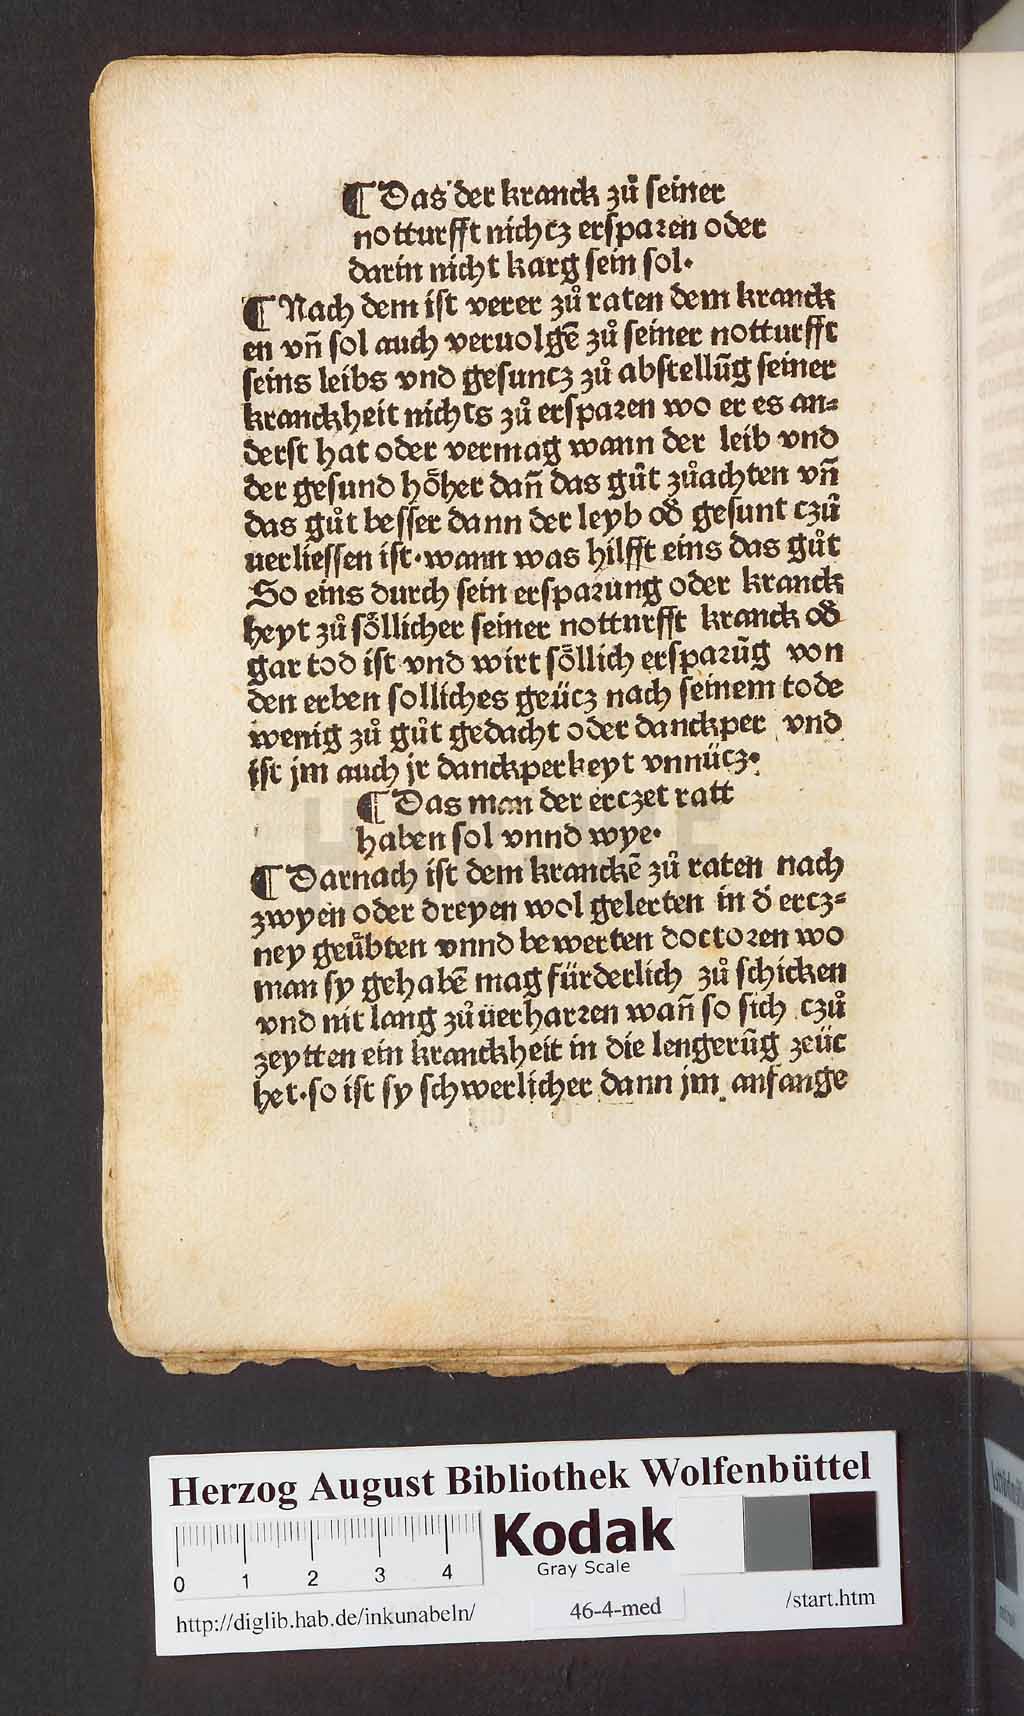 ¶ Das der kranck zů seiner
notturfft nichcz ersparen oder
darin nicht karg sein sol.
¶ Nach dem ist verer zů raten dem kranck
en vñ sol auch veruolgē zů seiner notturfft
seins leibs vnd gesuncz zů abstellūg seiner
kranckheit nichts zů ersparen wo er es an=
derst hat oder vermag wann der leib vnd
der gesund höher dañ das gůt zůachten vñ
das gůt besser dann der leyb od̄ gesunt czů
uerliessen ist. wann was hilfft eins das gůt
So eins durch sein ersparung oder kranck
heyt zů söllicher seiner notturfft kranck od̄
gar tod ist vnd wirt söllich ersparūg von
den erben solliches geücz nach seinem tode
wenig zů gůt gedacht oder danckper vnd
ist jm auch jr danckperkeyt vnnücz.
¶ Das man der erczet ratt
haben sol vnnd wye.
¶ Darnach ist dem kranckē zů raten nach
zwyen oder dreyen wol gelerten in d̄ ercz=
ney geübten vnnd bewerten doctoren wo
man sy gehabē mag fürderlich zů schicken
vnd nit lang zů üerharren wañ so sich czů
zeytten ein kranckheit in die lengerūg zeüc
het. so ist sy schwerlicher dann jm anfange
Herzog August Bibliothek Wolfenbüttel
0 1 2 3 4
Kodak
Gray Scale
http://diglib.hab.de/inkunabeln/ 46-4-med /start.htm